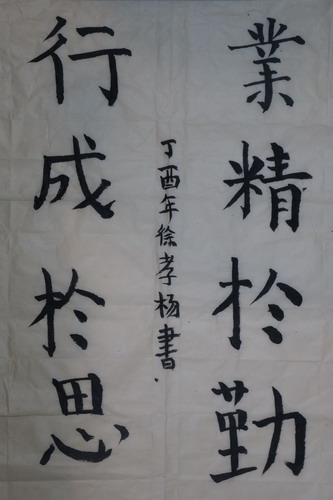 業精於勤
行成於思
丁酉年徐孝杨書